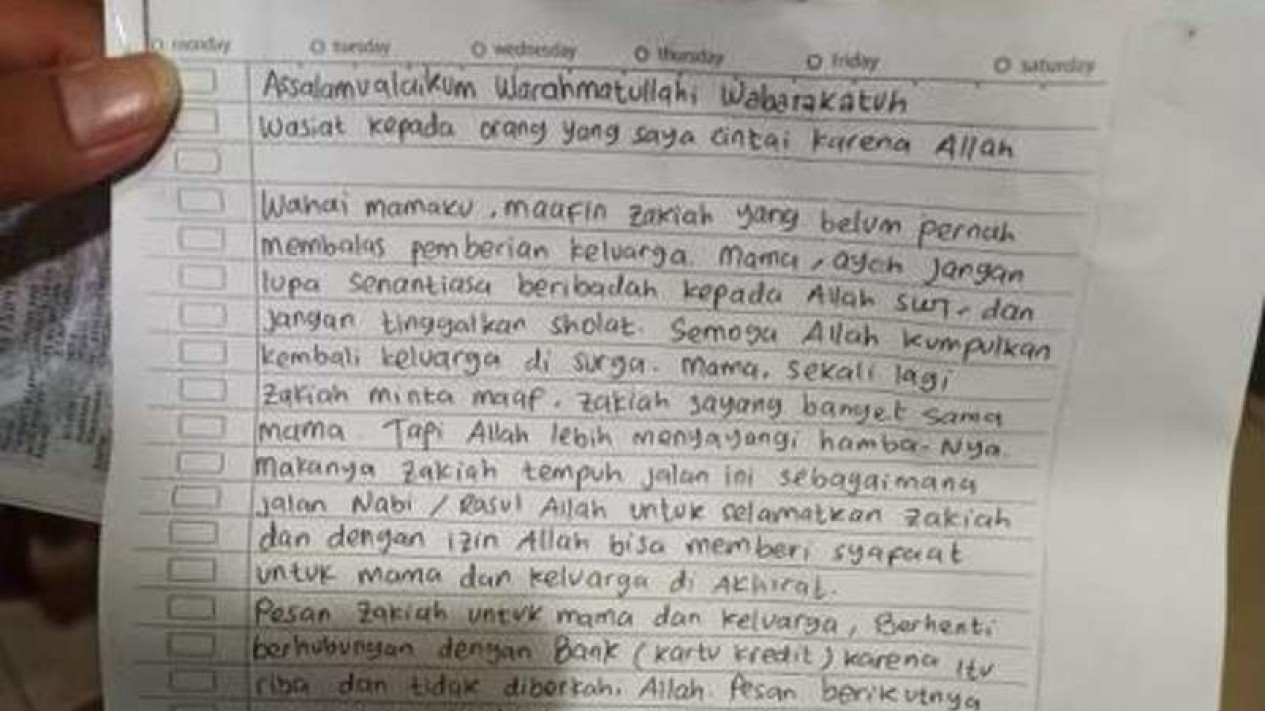 monday tuesday wednesday thursday friday saturday
Assalamualaikum Warahmatullahi Wabarakatuh
Wasiat kepada orang yang saya cintai karena Allah
Wahai mamaku, maafin zakiah yang belum pernah
membalas pemberian keluarga. Mama, ayah jangan
lupa senantiasa beribadah kepada Allah SWT, dan
jangan tinggalkan sholat. Semoga Allah kumpulkan
kembali keluarga di surga. Mama, sekali lagi
zakiah minta maaf. zakiah sayang banget sama
mama. Tapi Allah lebih menyayangi hamba-Nya.
makanya zakiah tempuh jalan ini sebagaimana
jalan Nabi / Rasul Allah untuk selamatkan zakiah
dan dengan izin Allah bisa memberi syafaat
untuk mama dan keluarga di Akhirat.
Pesan zakiah untuk mama dan keluarga, Berhenti
berhubungan dengan Bank (kartu kredit) karena itu
riba dan tidak diberkahi Allah. Pesan berikutnya